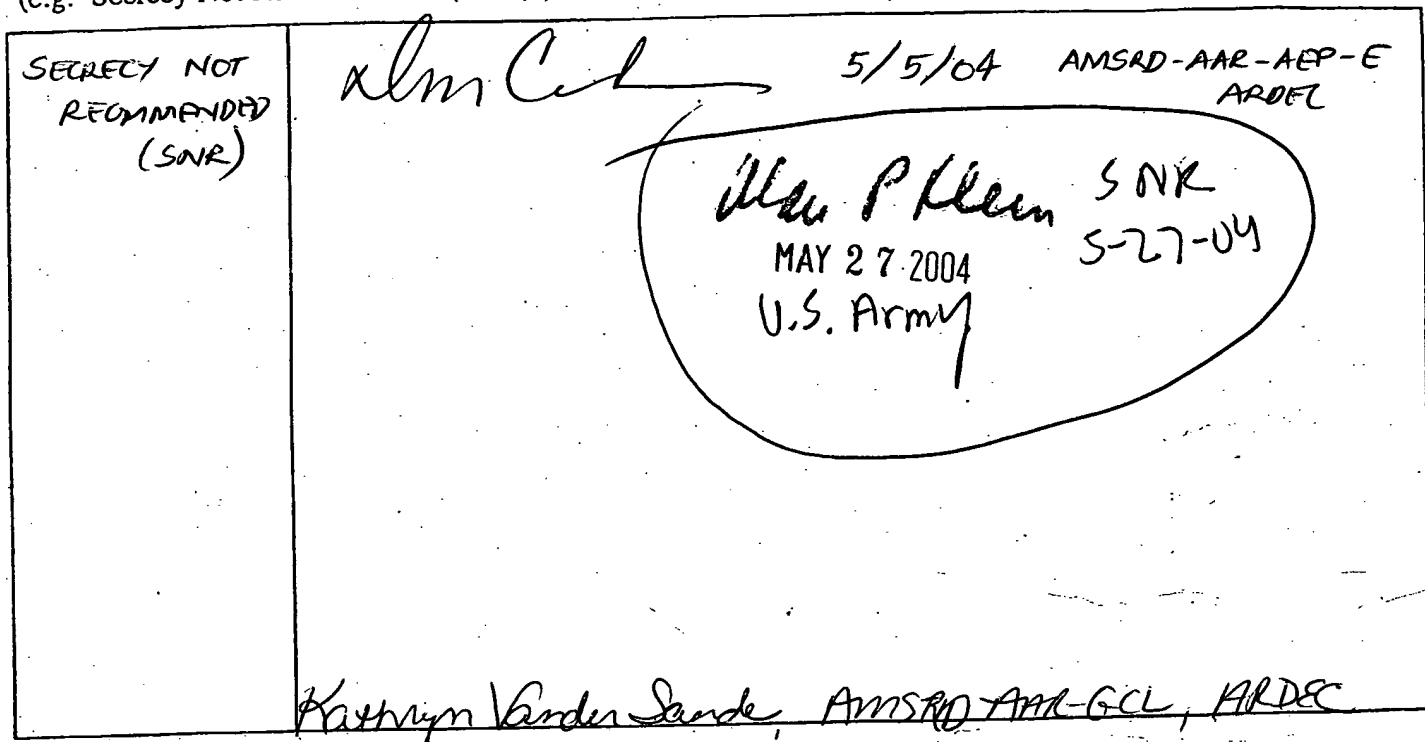 (e.g.
SECRECY NOT
RECOMMENDED
(SNR)
5/5/04 AMSRD-AAR-AEP-E
ARDEC
Alan P Klein SNR
5-27-04
MAY 27 2004
U.S. Army
Kathryn Vander Sande, AMSRD-AAR-GCL, ARDEC